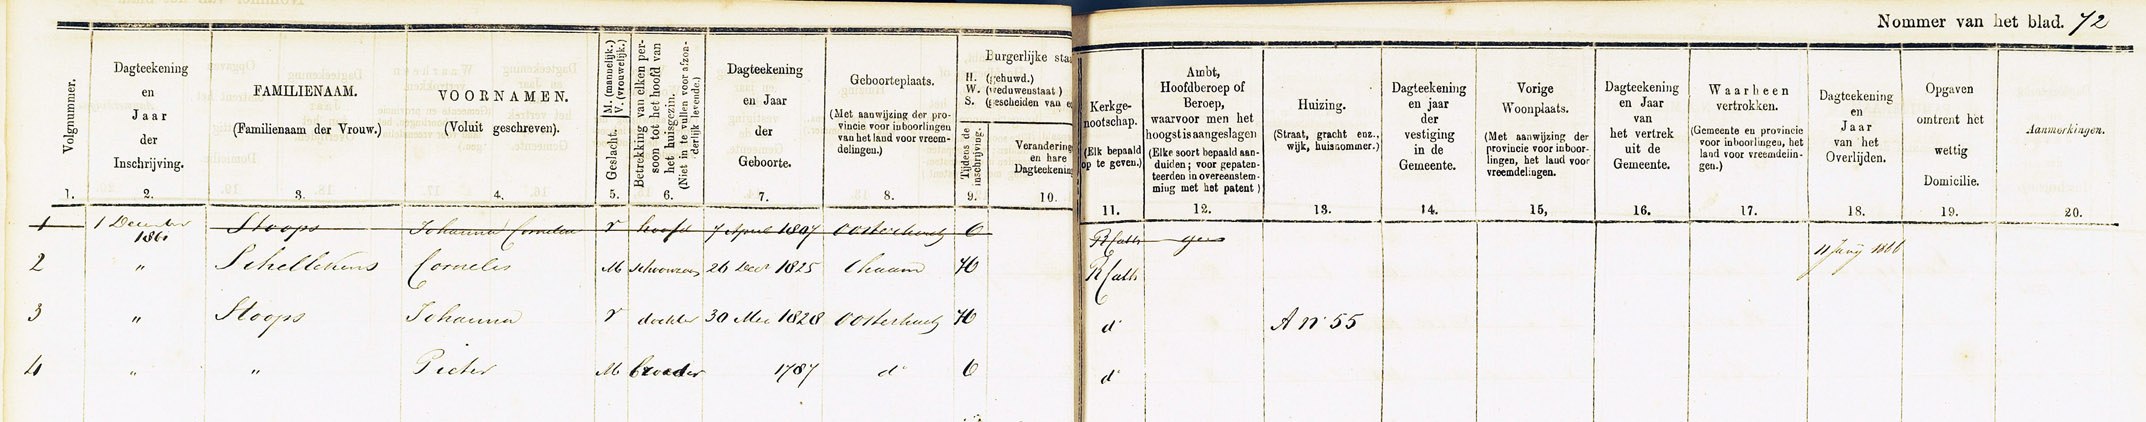 Nommer van het blad. 72
Volgnummer.
1.
Dagteekening
en
Jaar
der
Inschrijving.
2.
FAMILIENAAM.
(Familienaam der Vrouw.)
3.
VOORNAMEN.
(Voluit geschreven).
4.
M. (mannelijk.)
V. (vrouwelijk.)
Geslacht.
5.
Betrekking van elken per-
soon tot het hoofd van
het huisgezin.
(Niet in te vullen voor afzon-
derlijk levende.)
6.
Dagteekening
en Jaar
der
Geboorte.
7.
Geboorteplaats.
(Met aanwijzing der pro-
vincie voor inboorlingen
van het land voor vreem-
delingen.)
8.
Burgerlijke sta
H. (gehuwd.)
W. (weduwenstaat)
S. (gescheiden van e
Tijdens de
inschrijving.
9.
Verandering
en hare
Dagteekening
10.
Kerkge-
nootschap.
(Elk bepaald
op te geven.)
11.
Ambt,
Hoofdberoep of
Beroep,
waarvoor men het
hoogst is aangeslagen
(Elke soort bepaald aan-
duiden; voor gepaten-
teerden in overeenstem-
ming met het patent)
12.
Huizing.
(Straat, gracht enz.,
wijk, huisnommer.)
13.
Dagteekening
en jaar
der
vestiging
in de
Gemeente.
14.
Vorige
Woonplaats.
(Met aanwijzing der
provincie voor inboor-
lingen, het land voor
vreemdelingen.
15,
Dagteekening
en Jaar
van
het vertrek
uit de
Gemeente.
16.
Waarheen
vertrokken.
(Gemeente en provincie
voor inboorlingen, het
land voor vreemdelin-
gen.)
17.
Dagteekening
en
Jaar
van het
Overlijden.
18.
Opgaven
omtrent het
wettig
Domicilie.
19.
Aanmerkingen.
20.
1 1 December 1861 Stoops Johanna Cornelia V hoofd 7 April 1807 Oosterhout O R Cath geen 11 Junij 1866
2 " Schellekens Cornelis M schoonzoon 26 Decr 1825 Chaam H R Cath
3 " Stoops Johanna V dochter 30 Mei 1828 Oosterhout H do A No 55
4 " " Pieter M broeder 1787 do O do